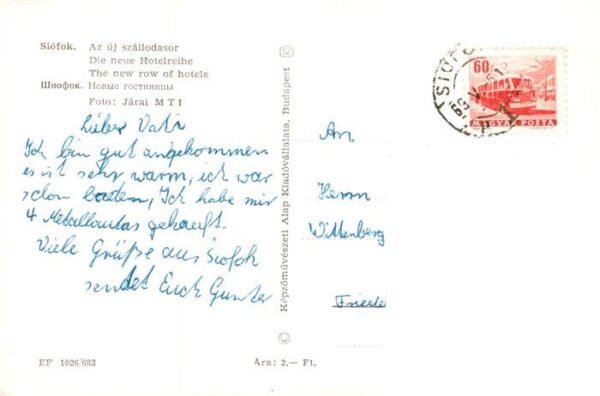 Siófok. Az új szállodasor
Die neue Hotelreihe
The new row of hotels
Шиофок. Новые гостиницы
Foto: Járai MTI
Lieber Vati
Ich bin gut angekommen
es ist sehr warm, ich war
schon baden, Ich habe mir
4 Metallautas gekauft.
Viele Grüße aus Siofok
sendet Euch Gunter
EF 1026/683
Képzőművészeti Alap Kiadóvállalata, Budapest
Ára: 2,— Ft.
SIÓFO
60
MAGYAR POSTA
An
Herrn
Wittenberg